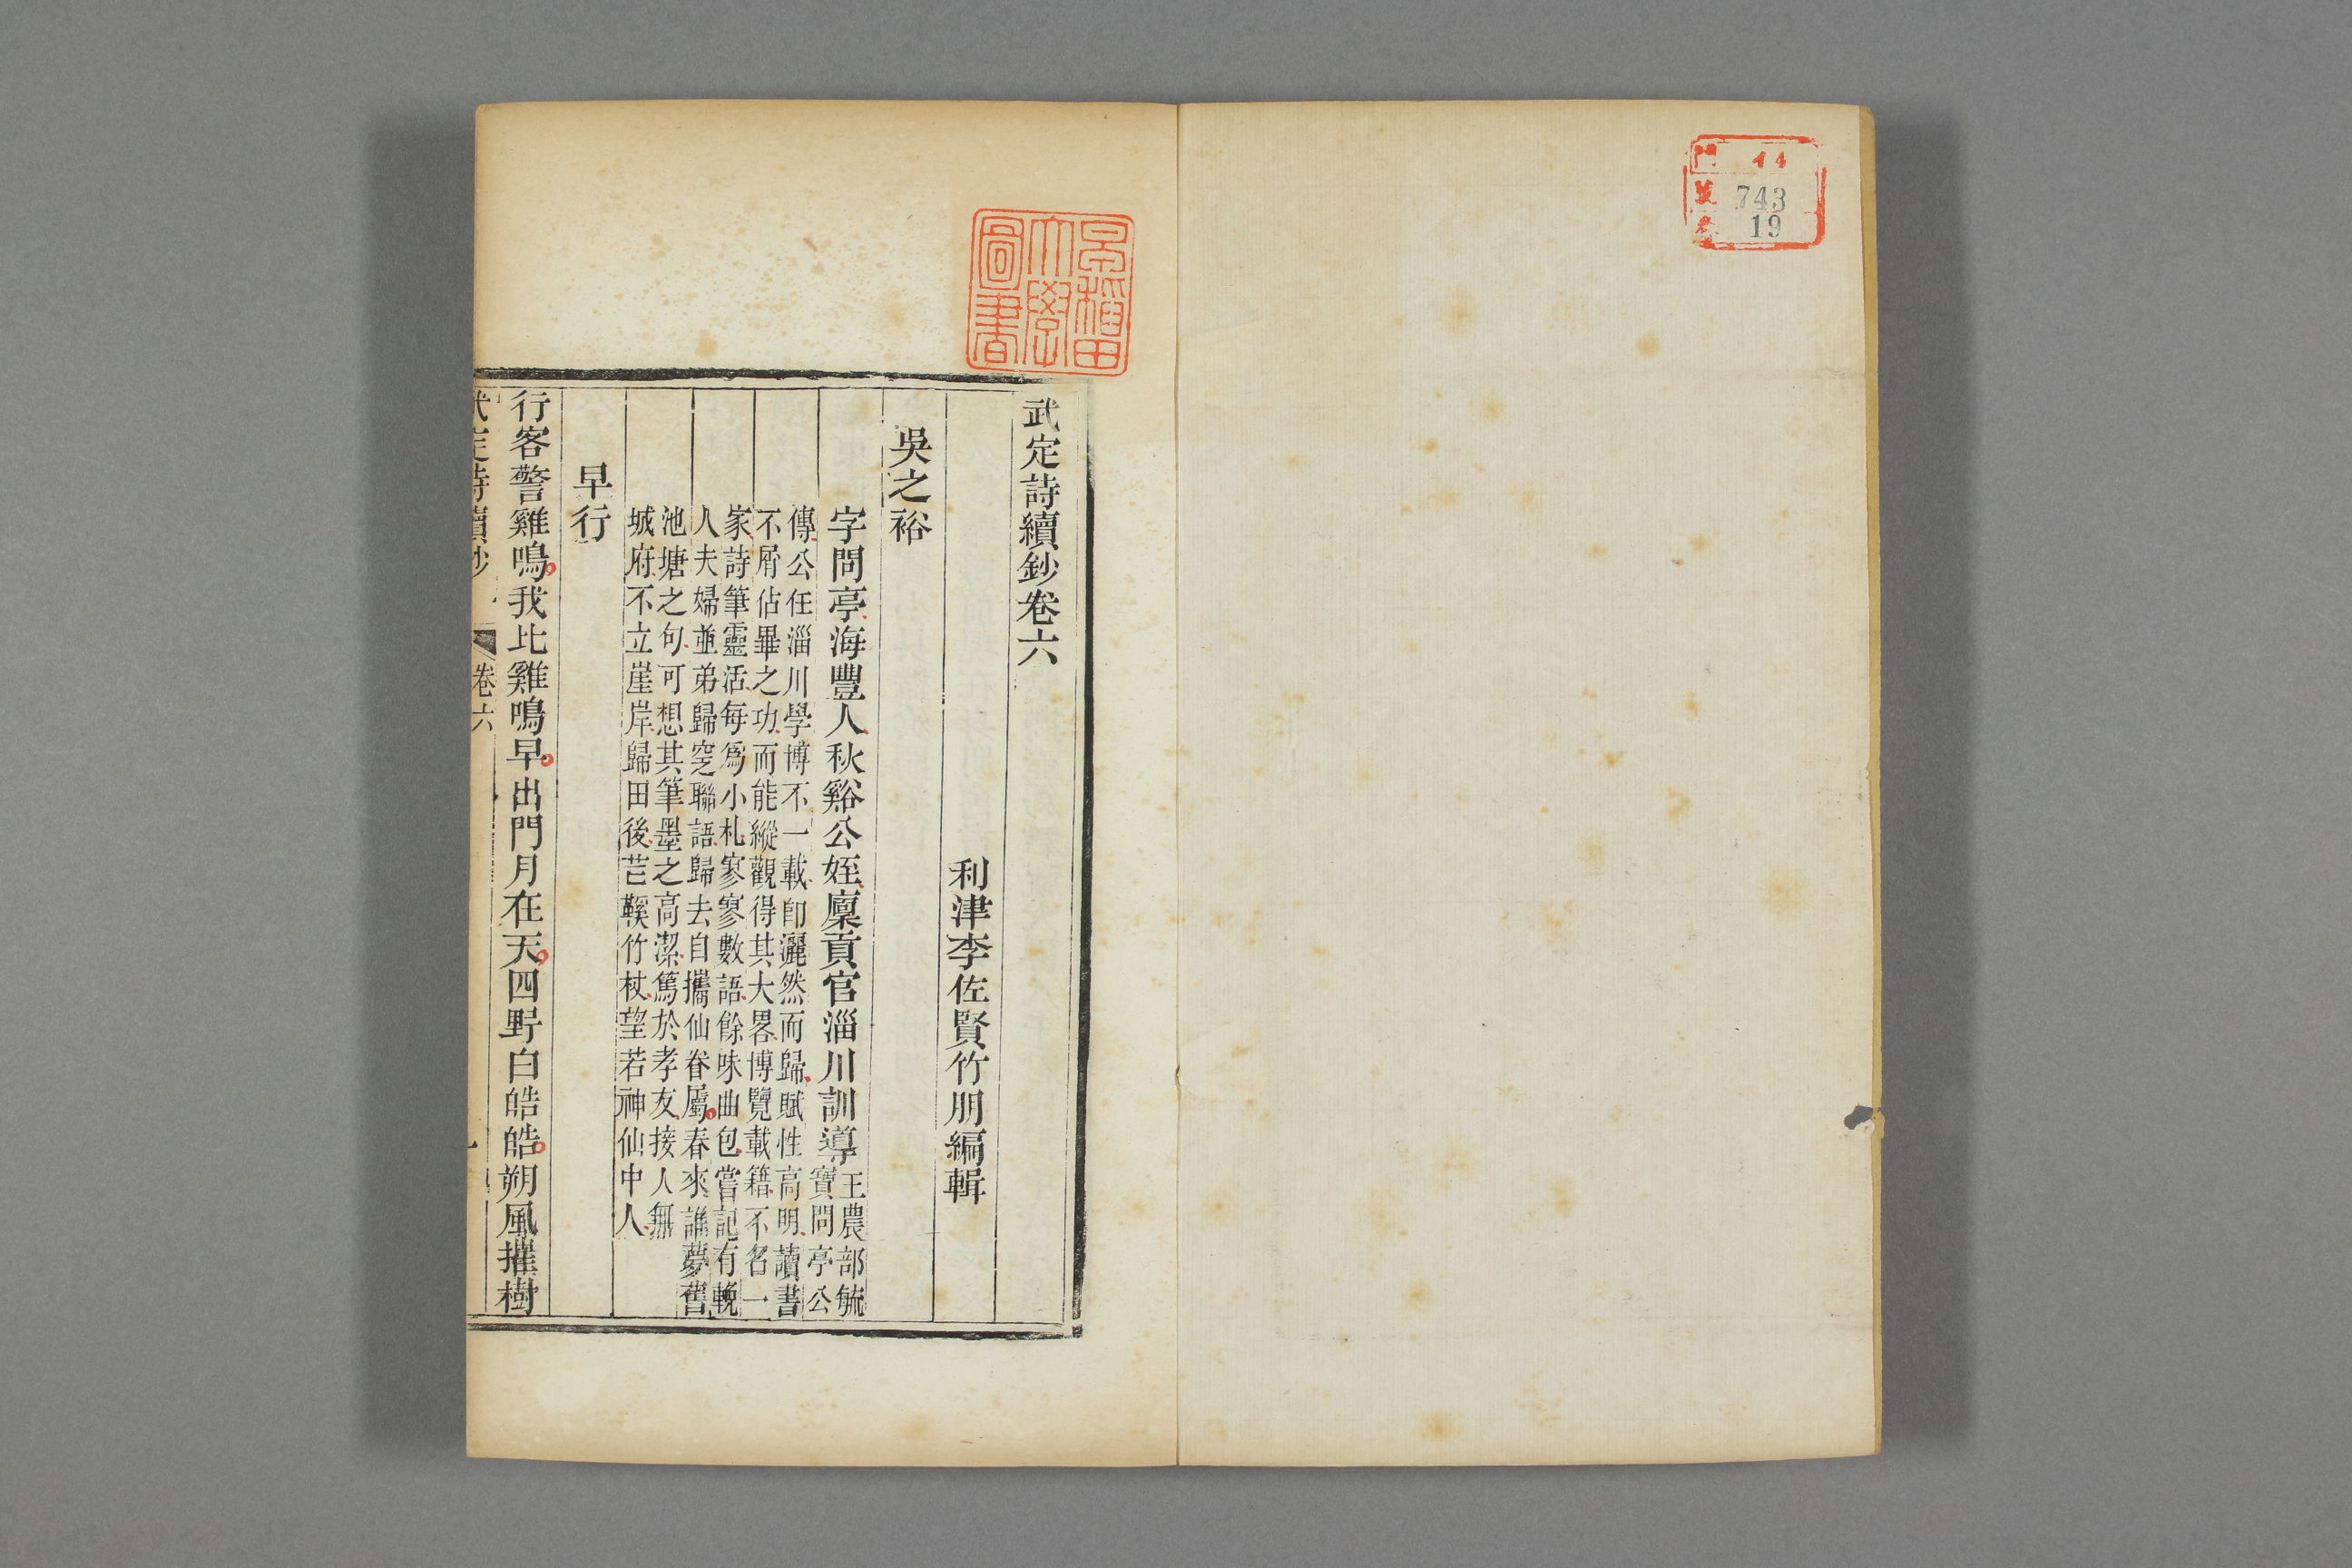 門 14
號 743
卷 19
早稲田
大學
圖書
武定詩續鈔卷六
利津李佐賢竹朋編輯
吳之裕
字問亭海豐人秋谿公姪廩貢官淄川訓導
王農部毓
寶問亭公
傳公任淄川學博不一載卽灑然而歸賦性高明讀書
不屑佔畢之功而能縱觀得其大畧博覽載籍不名一
家詩筆靈活每爲小札寥寥數語餘味曲包嘗記有輓
人夫婦並弟歸窆聯語歸去自攜仙眷屬春來誰夢舊
池塘之句可想其筆墨之高潔篤於孝友接人無
城府不立崖岸歸田後芒鞵竹杖望若神仙中人
早行
行客警雞鳴我比雞鳴早出門月在天四野白皓皓朔風摧樹
武定詩續鈔
卷六
一